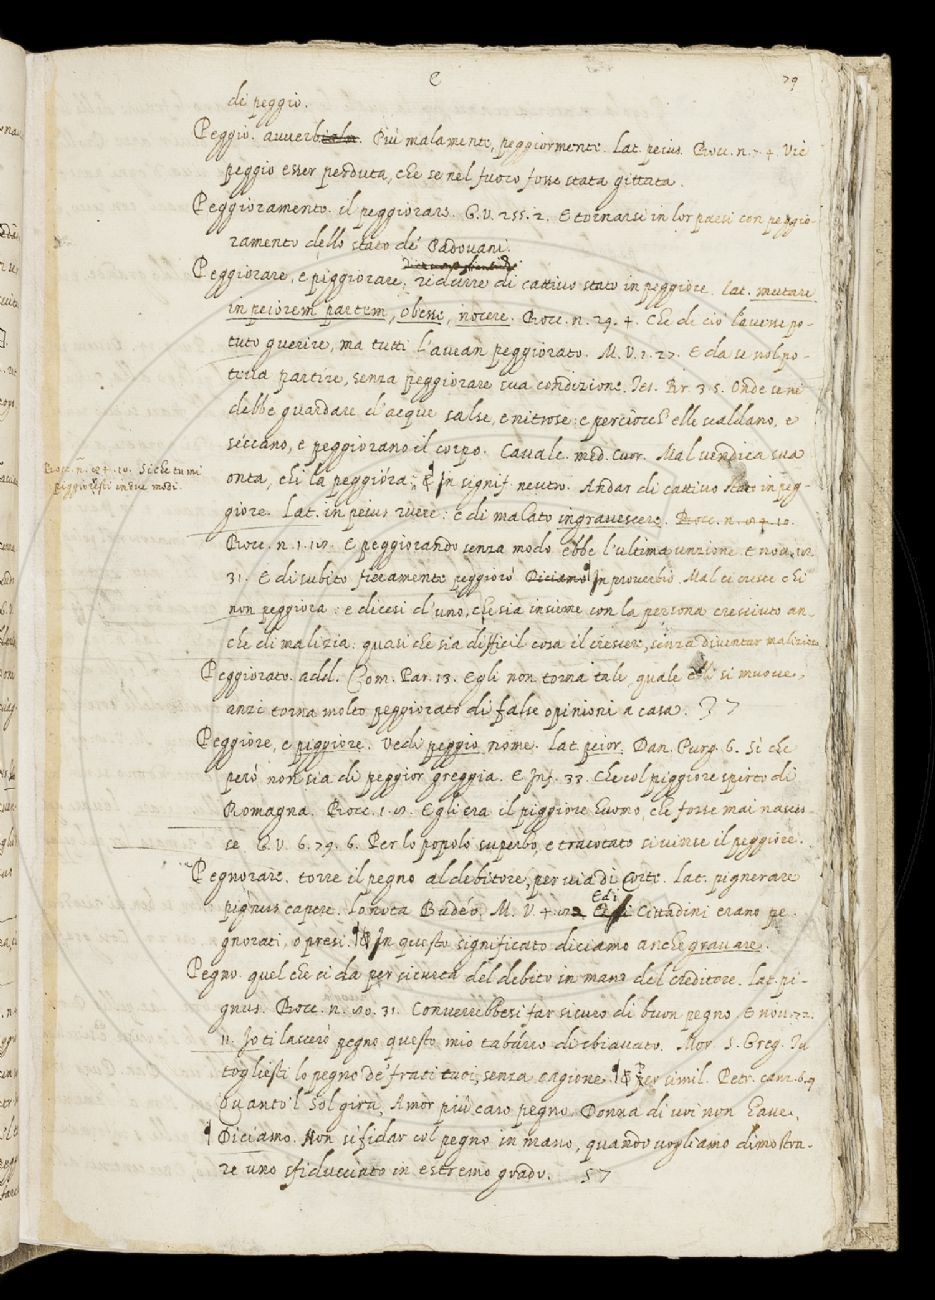 C 29
di peggio.
Peggio. avverbiale. Più malamente, peggiormente. Lat. peius. Bocc. n. 7. 4. Vie
peggio esser perduta, che se nel fuoco fosse stata gittata.
Peggioramento. il peggiorare. G. V. 255. 2. E tornarsi in lor paesi con peggio-
ramento dello stato de' Padovani.
Peggiorare, e piggiorare; ridurre di cattivo stato in peggiore. Lat. mutare
in peiorem partem, obesse, nocere. Bocc. n. 29. 4. Che di ciò l'avesse po-
tuto guerire, ma tutti l'avean peggiorato. M. V. 1. 27. E da se nol po-
teva partire, senza peggiorare sua condizione. Tes. Br. 3. 5. Onde se ne
debbe guardare d'acque salse, e nitrose: e perciocch' elle scaldano, e
seccano, e peggiorano il corpo. Cavalc. med. cuor. Mal vendica sua
Bocc. n. 84. 10. Siche tu mi
piggiorasti in due modi.
onta, chi la peggiora; & In signif. neutro. Andar di cattivo stato in peg-
giore. Lat. in peius ruere: e di malato ingravescere. Bocc. n. 84. 10.
Bocc. n. 1. 18. E peggiorando senza modo ebbe l'ultima unzione. E nov. 18
31. E di subito fieramente peggiorò Diciamo In proverbio. Mal ci cresce chi
non peggiora: e dicesi d'uno, che sia insieme con la persona cresciuto an-
che di malizia: quasi che sia difficil cosa il crescere, senza diventar malizioso
Peggiorato. add. Com. Par. 13. Egli non torna tale, quale elli si muove,
anzi torna molto peggiorato di false opinioni a casa. 37
Peggiore, e piggiore. Vedi peggio nome. Lat. peior. Dan. Purg. 6. Sì che
però non sia di peggior greggia. E Inf. 33. Che col piggiore spirto di
Romagna. Bocc. 1. 8. Egli era il piggiore huomo, che forse mai nasces-
se. G. V. 6. 79. 6. Per lo popolo superbo, e tracotato si vinse il peggiore.
Pegnorare. torre il pegno al debitore, per via di Corte. Lat. pignerare
pignus capere. Lo nota Budéo. M. V. 4. E di Cittadini erano pe-
gnorati, o presi. & In questo significato diciamo anche gravare.
Pegno. quel che si da per sicurtà del debito in mano del creditore. Lat. pi-
gnus. Bocc. n. 80. 31. Converrebbesi far sicuro di buon pegno E nov. 72.
11. Io ti lascerò pegno questo mio tabarro di sbiavato. Mor. S. Greg. Tu
togliesti lo pegno de' frati tuoi, senza cagione. & Per simil. Petr. canz. 6. 9
Quanto 'l Sol gira, Amor più caro pegno Donna di voi non have,
Diciamo. Non si fidar col pegno in mano, quando vogliamo dimostra-
re uno sfiducciato in estremo grado. 57